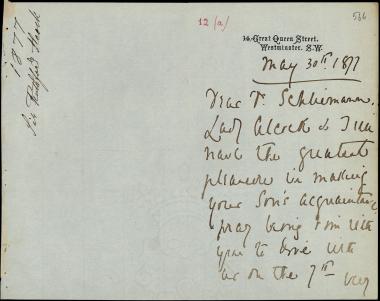 12 (a)
536
14, Great Queen Street,
Westminster, S.W.
May 30th 1877
Dear Dr. Schliemann,
Lady Alcock & I will
have the greatest
pleasure in making
your Son's acquaintance
pray bring him with
you to dine with
us on the 7th
1877
Sir Rutherford Alcock